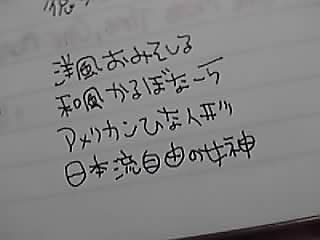 洋風おみそしる
和風かるぼなーら
アメリカンひな人形
日本流自由の女神